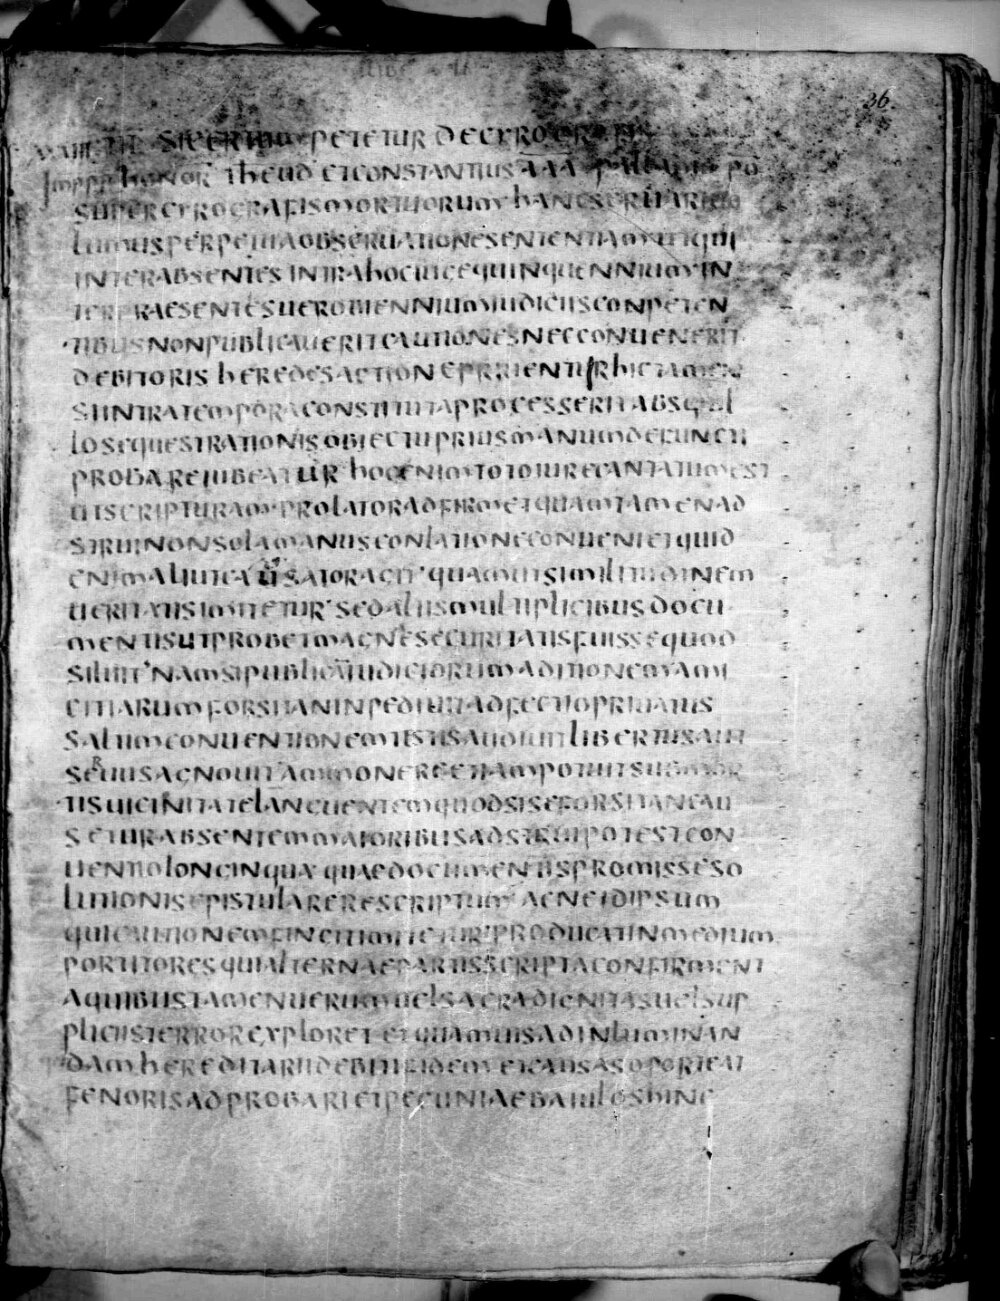 36
PETETUR DE CYROGRAF
IMPPP HONOR THEUD ET CONSTANTIUS AAA PALLADIO PO
SUPER CYROGRAFIS MORTUORUM HANC SERUARI
PERPETUA OBSERUATIONE SENTENTIAM UT QUI
INTER ABSENTES INTRA HOC UICE QUINQUENNIUM IN
TER PRAESENTES UERO BIENNIUM IUDICIIS CONPETEN
TIBUS NON PUBLICAUERIT CAUTIONES NEC CONUENERIT
DEBITORIS HEREDES ACTIONE PRIUENTUR HIC TAMEN
SI INTRA TEMPORA CONSTITUTA PROCESSERIT ABSQUE
LO SEQUESTRATIONIS OBIECTU PRIUS MANUM DEFUNCTI
PROBARE IUBEATUR HOC ENIM TOTO IURE CANTATUM EST
UT SCRIPTURAM PROLATOR ADFIRMET QUAM TAMEN AD
STRUI NON SOLA MANUS CONLATIONE CONUENIET QUID
ENIM ALIUT FALSATOR AGIT QUAM UT SIMILITUDINEM
UERITATIS IMITETUR SED ALIIS MULTIPLICIBUS DOCU
MENTIS UT PROBET MAGNE SECURITATIS FUISSE QUOD
SILUIT NAM SI PUBLICA IUDICIORUM ADITIONEM AMI
CITIARUM FORSITAN INPEDIUIT ADFECTIO PRIUATIS
SALTIM CONUENTIONEM TESTIS AUDIUIT LIBERTUS AUT
SERUUS AGNOUIT ADMONERE ETIAM POTUIT
TIS UICINITATE LANGUENTEM QUOD SI SE FORSITAN CAU
SETUR ABSENTEM MAIORIBUS ADSTRUI POTEST CON
UENTIO LONGINQUA QUAE DOCUMENTIS PROMISSE SO
LUTIONIS EPISTULARE RESCRIPTUM AC NE ID IPSUM
QUI CAUTIONEM FINCIT IMITETUR PRODUCAT IN MEDIUM
PORTITORES QUI ALTERNAE PARTIS SCRIPTA CONFIRMENT
A QUIBUS TAMEN UERUM UEL SACRA DIGNITAS UEL SUP
PLICIIS TERROR EXPLORET ET QUAMUIS AD INLUMINAN
DAM HEREDITARII DEBITI FIDEM ET CAUSAS OPORTEAT
FENORIS ADPROBARI ET PECUNIAE BAIULOS HINC